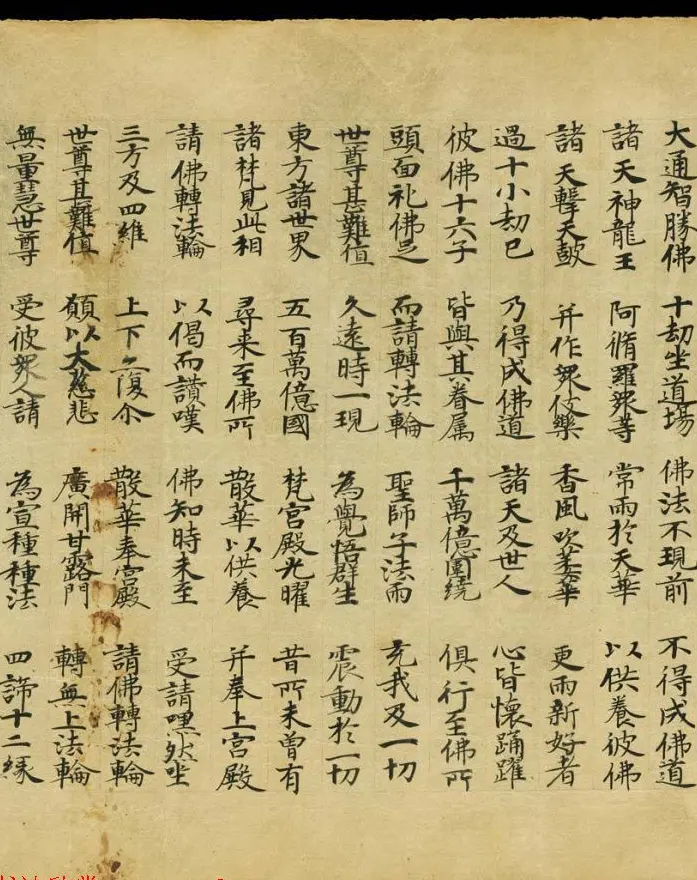 大通智勝佛 十劫坐道場 佛法不現前 不得成佛道
諸天神龍王 阿脩羅衆等 常雨於天華 以供養彼佛
諸天擊天鼓 并作衆伎樂 香風吹萎華 更雨新好者
過十小劫已 乃得成佛道 諸天及世人 心皆懷踊躍
彼佛十六子 皆與其眷属 千萬億圍繞 俱行至佛所
頭面礼佛足 而請轉法輪 聖師子法雨 充我及一切
世尊甚難值 久遠時一現 為覺悟群生 震動於一切
東方諸世界 五百萬億國 梵宮殿光曜 昔所未曾有
諸梵見此相 尋来至佛所 散華以供養 并奉上宮殿
請佛轉法輪 以偈而讚嘆 佛知時未至 受請嘿然坐
三方及四維 上下亦復尒 散華奉宮殿 請佛轉法輪
世尊甚難值 願以大慈悲 廣開甘露門 轉無上法輪
無量慧世尊 受彼衆人請 為宣種種法 四諦十二緣